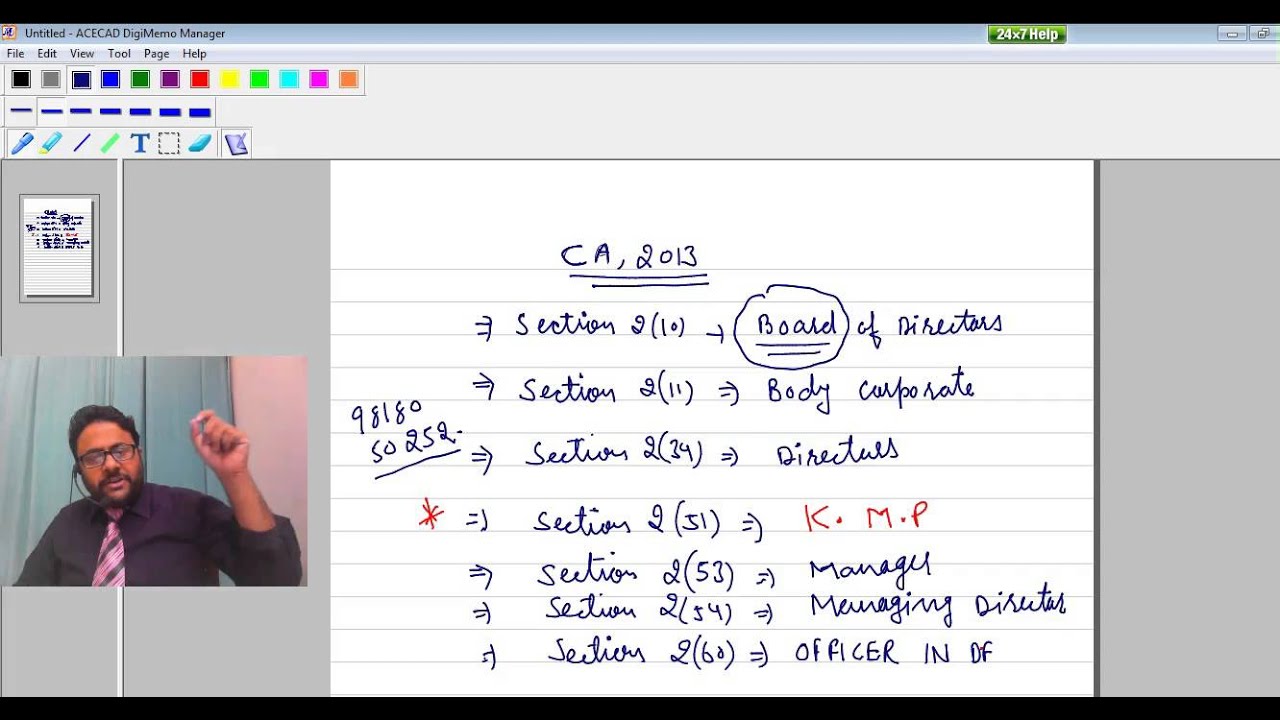 Untitled - ACECAD DigiMemo Manager
24x7 Help
File Edit View Tool Page Help
T
CA, 2013
⇒ Section 2(10) → Board of Directors
⇒ Section 2(11) ⇒ Body corporate
98180
50252.
⇒ Section 2(34) ⇒ Directors
* ⇒ Section 2(51) ⇒ K. M.P
⇒ Section 2(53) ⇒ Manager
⇒ Section 2(54) ⇒ Managing Director
⇒ Section 2(60) ⇒ OFFICER IN DF